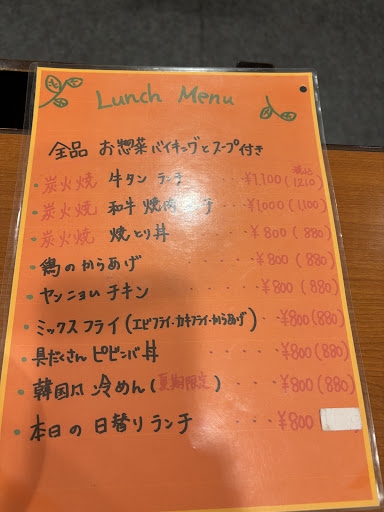 Lunch Menu
全品 お惣菜バイキングとスープ付き
税込
・炭火焼 牛タン ランチ ・・・・ ¥1,100(1210)
・炭火焼 和牛 焼肉 ・・・ ¥1,000(1,100)
・炭火焼 焼とり丼 ・・・・ ¥800(880)
・鶏のからあげ ・・・・ ¥800(880)
・ヤンニョムチキン ・・・・ ¥800(880)
・ミックスフライ(エビフライ・カキフライ・からあげ) ・・・・ ¥800(880)
・具だくさん ビビンバ丼 ・・・・ ¥800(880)
・韓国風 冷めん(夏期限定) ・・・・ ¥800(880)
・本日の 日替りランチ ・・・・ ¥800